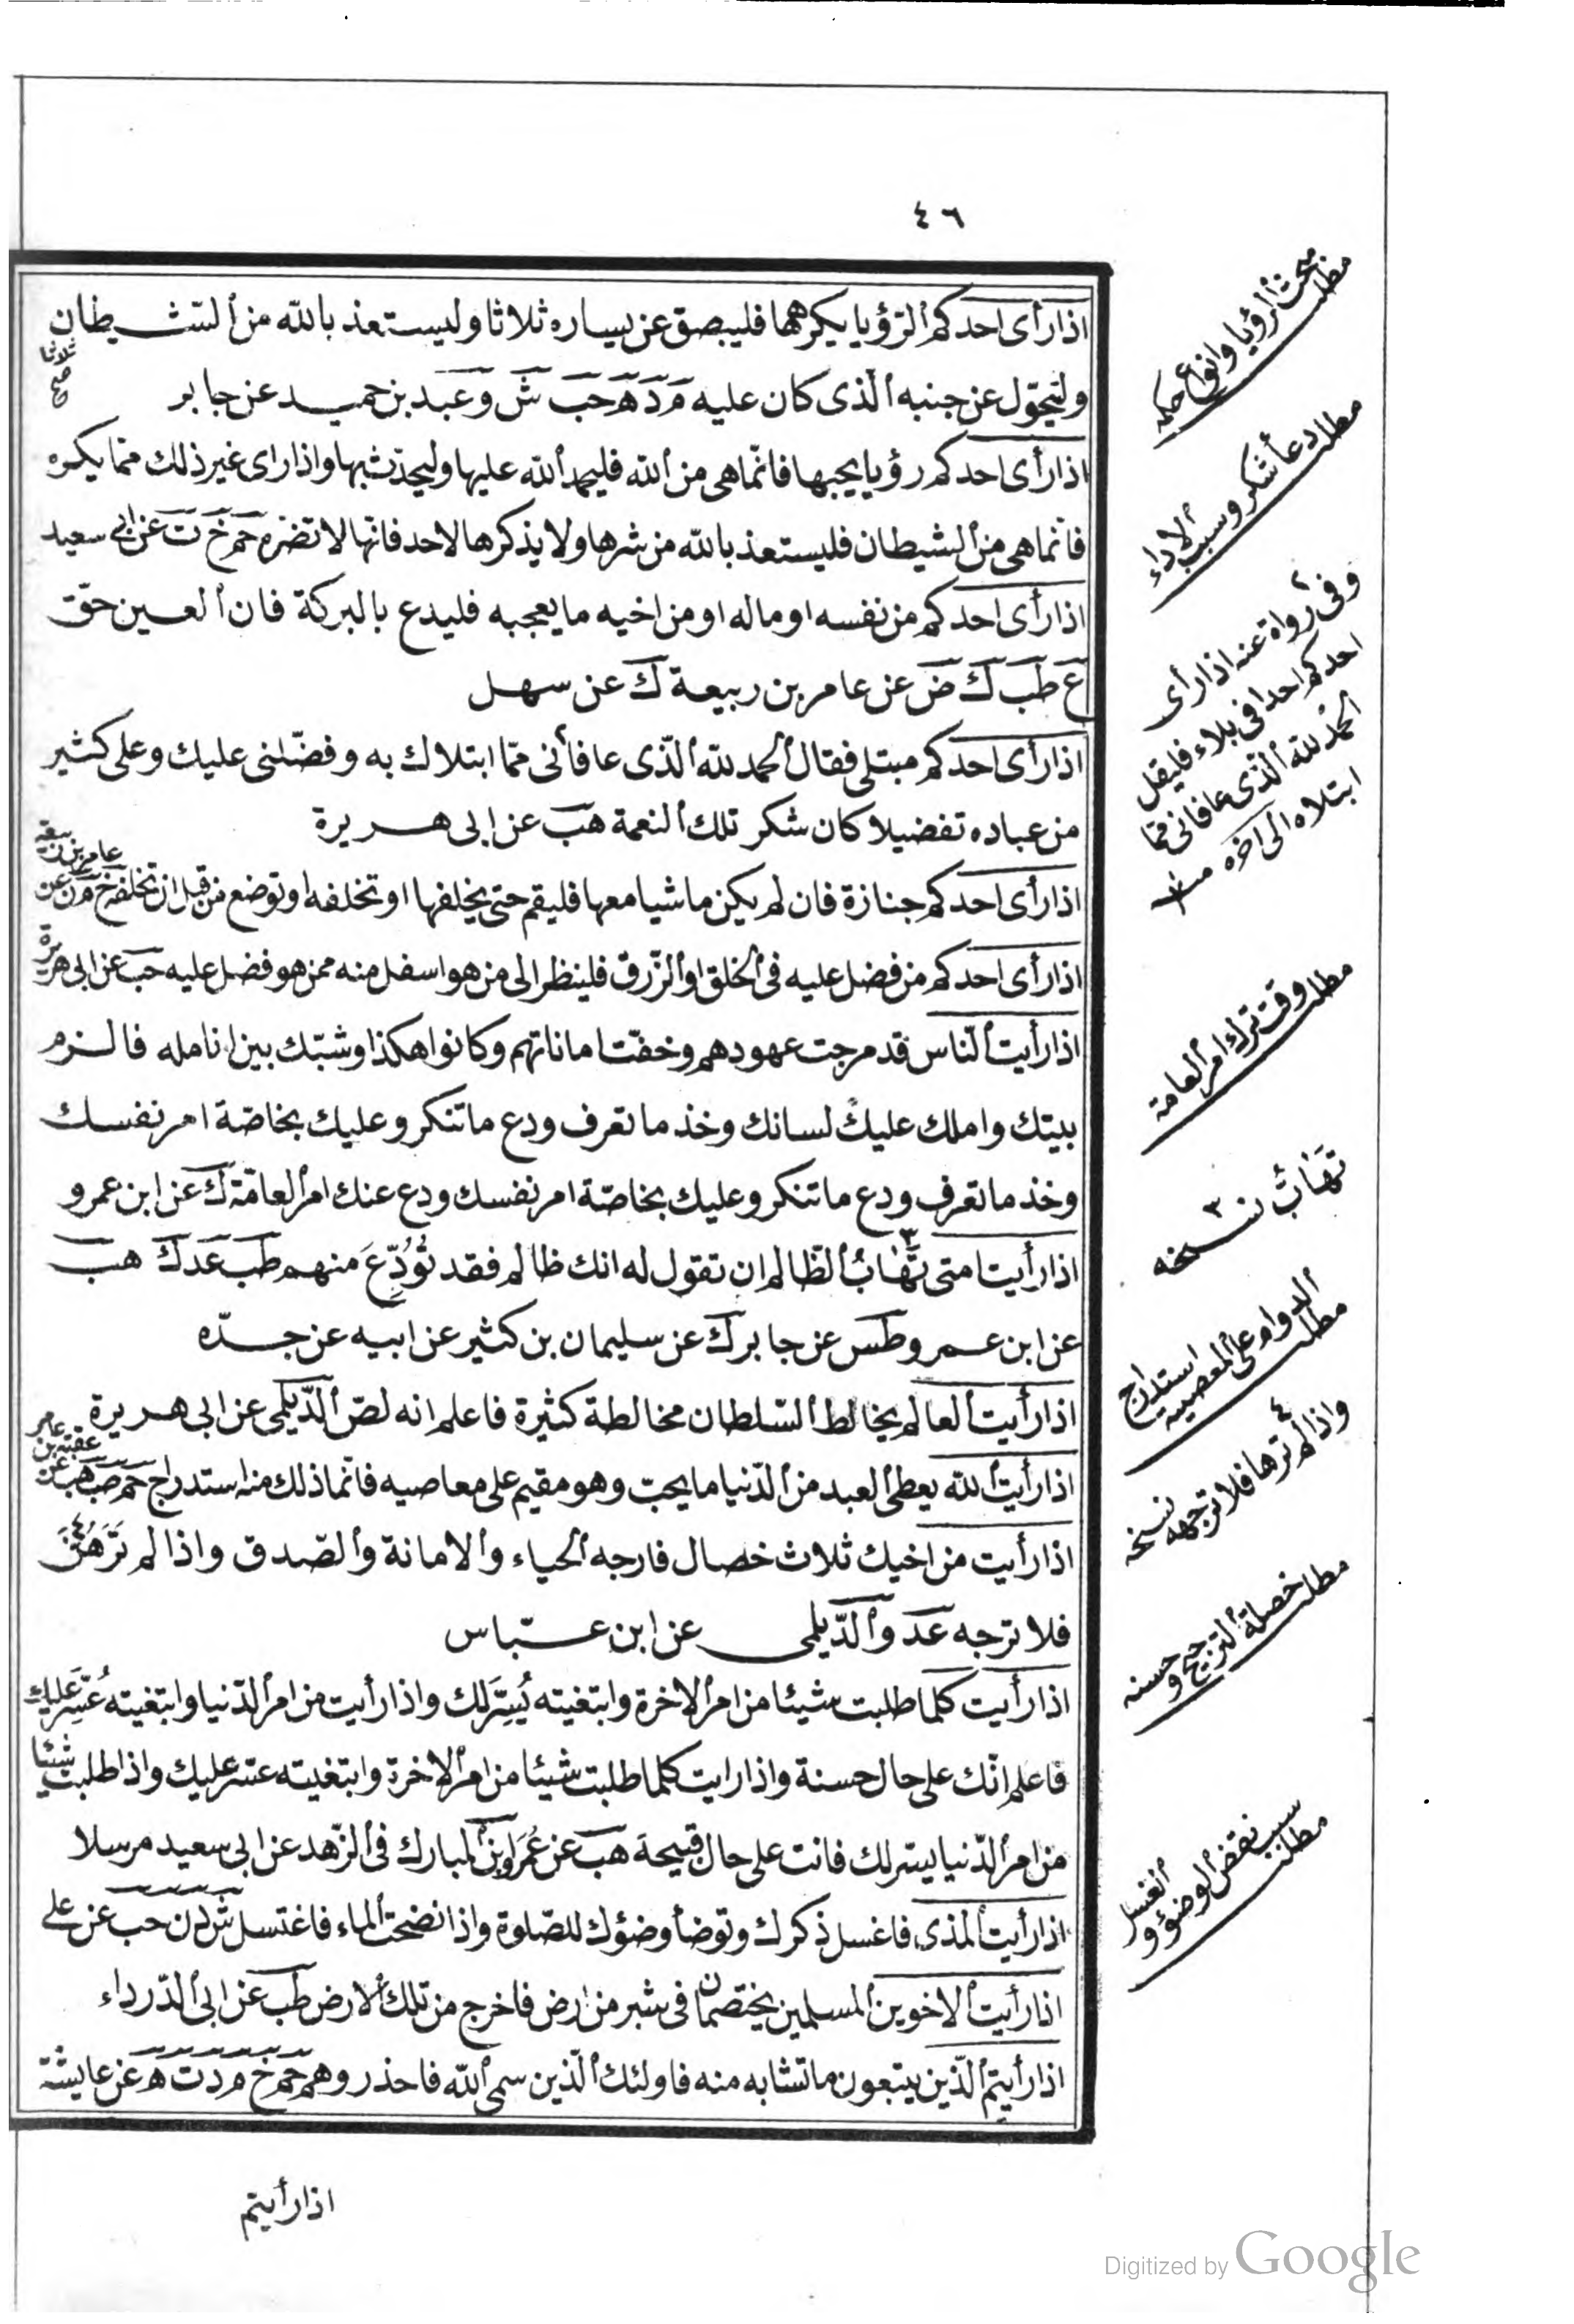 ٤٦
اذا رأى احدكم ٱلرّؤيا يكرهها فليبصق عن يساره ثلاثا وليستعذ بالله من ٱلشيطان
ثلاثا صح
وليتحوّل عن جنبه ٱلّذى كان عليه م د ه حب ش وعبد بن حميد عن جابر
اذا رأى احدكم رؤيا يحبها فانّما هى من ٱلله فليحمد ٱلله عليها وليحدّث بها واذا راى غير ذلك ممّا يكره
فانّما هى من ٱلشيطان فليستعذ بالله من شرها ولا يذكرها لاحد فانّها لا تضرّه حم خ ت عن ابى سعيد
اذا رأى احدكم من نفسه او ماله او من اخيه ما يعجبه فليدع بالبركة فان ٱلعين حقّ
ع طب ك ض عن عامر بن ربيعة ك عن سهل
اذا رأى احدكم مبتلى فقال ٱلحمد لله ٱلّذى عافأنى ممّا ابتلاك به وفضّلنى عليك وعلى كثير
من عباده تفضيلا كان شكر تلك ٱلنعمة هب عن ابى هريرة
اذا رأى احدكم جنازة فان لم يكن ماشيا معها فليقم حتى يخلفها او تخلفه او توضع من قبل ان تخلفه خ م ن عن عامر بن ربيعة
اذا رأى احدكم من فضل عليه فى ٱلخلق او ٱلرّزق فلينظر الى من هو اسفل منه ممن هو فضل عليه حب عن ابى هريرة
اذا رأيت ٱلنّاس قد مرجت عهودهم وخفّت اماناتهم وكانوا هكذا وشبّك بين انامله فالزم
بيتك واملك عليك لسانك وخذ ما تعرف ودع ما تنكر وعليك بخاصّة امر نفسك
وخذ ما تعرف ودع ما تنكر وعليك بخاصّة امر نفسك ودع عنك امر ٱلعامّة ك عن ابن عمرو
اذا رأيت امتى تَهَابُ ٱلظّالم ان تقول له انك ظالم فقد تُوُدِّعَ منهم طب عد ك هب
عن ابن عمرو طس عن جابر ك عن سليمان بن كثير عن ابيه عن جدّه
اذا رأيت ٱلعالم يخالط ٱلسّلطان مخالطة كثيرة فاعلم انه لصّ ٱلدّيلمى عن ابى هريرة
اذا رأيت ٱلله يعطى ٱلعبد من ٱلدّنيا ما يحبّ وهو مقيم على معاصيه فانّما ذلك منه استدراج حم طب هب عن عقبة بن عامر
اذا رأيت من اخيك ثلاث خصال فارجه ٱلحياء وٱلامانة وٱلصّدق واذا لم تَرَهُنَّ
فلا ترجه عد وٱلدّيلمى عن ابن عبّاس
اذا رأيت كلما طلبت شيئا من امر ٱلاخرة وابتغيته يُسِّرَ لك واذا رأيت من امر ٱلدّنيا وابتغيته عُسِّرَ عليك
فاعلم انّك على حال حسنة واذا رايت كلما طلبت شيئا من امر ٱلاخرة وابتغيته عسّر عليك واذا طلبت شيئا
من امر ٱلدّنيا يسّر لك فانت على حال قبيحة هب عن عُمَرَ وابن ٱلمبارك فى ٱلزّهد عن ابى سعيد مرسلا
اذا رأيت ٱلمذى فاغسل ذكرك وتوضأ وضؤك للصّلوة واذا نضحت ٱلماء فاغتسل ش د ن حب عن على
اذا رأيت ٱلاخوين ٱلمسلمين يختصمان فى شبر من ارض فاخرج من تلك ٱلارض طب عن ابى ٱلدّرداء
اذا رأيتم ٱلّذين يتبعون ما تشابه منه فاولئك ٱلّذين سمى ٱلله فاحذروهم حم خ م د ت ه عن عايشة
اذا رأيتم
مطلب
مبحث ٱلرؤيا وانواع حكمه
مطلب دعأ شكر وسبب
ٱلاداء
وفى رواة عنه اذا رأى
احدكم احدا فى بلاء فليقل
ٱلحمد لله ٱلّذى عافانى ممّا
ابتلاه الى آخره
مطلب وقت ترك امر ٱلعامة
تَهَابُ نسخه ٣
مطلب
ٱلدوام على ٱلمعصيه استدراج
واذا لم ترها فلا ترجه نسخه ٤
مطلب خصلة ٱلترجيح وحسنه
مطلب
سبب نقض ٱلوضؤ و
ٱلغسل
Digitized by Google